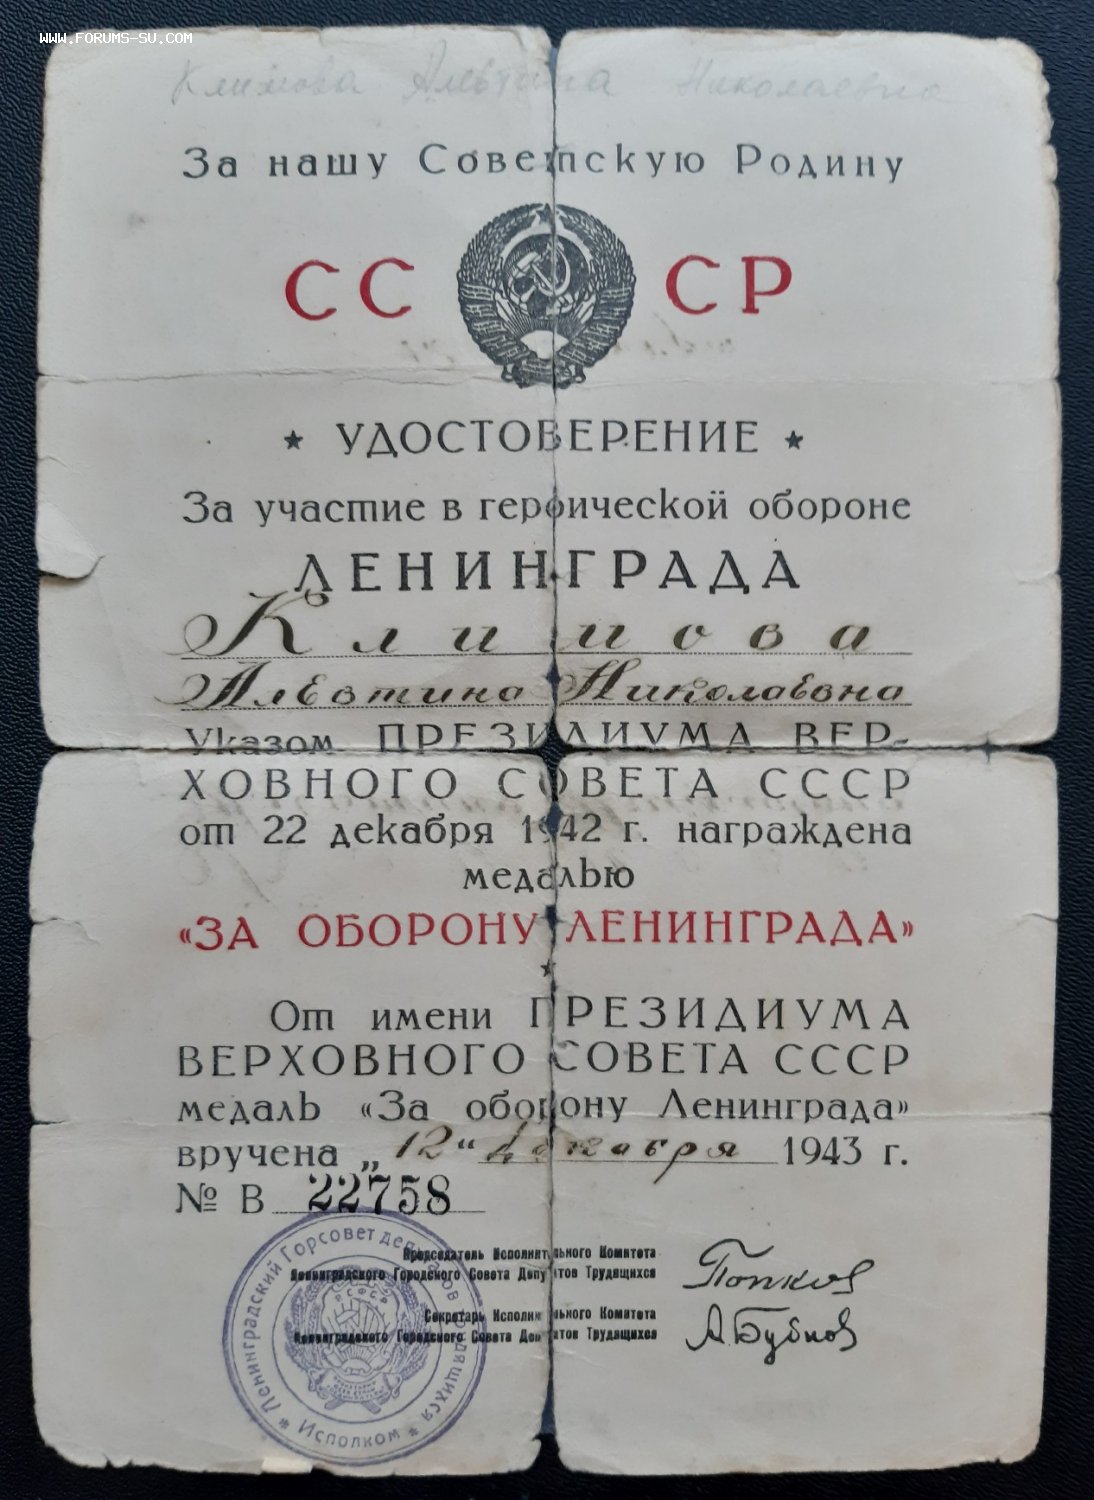 www.forums-su.com
Климова Алевтина Николаевна
За нашу Советскую Родину
СССР
★ УДОСТОВЕРЕНИЕ ★
За участие в героической обороне
ЛЕНИНГРАДА
Климова
Алевтина Николаевна
Указом ПРЕЗИДИУМА ВЕР-
ХОВНОГО СОВЕТА СССР
от 22 декабря 1942 г. награждена
медалью
«ЗА ОБОРОНУ ЛЕНИНГРАДА»
★
От имени ПРЕЗИДИУМА
ВЕРХОВНОГО СОВЕТА СССР
медаль «За оборону Ленинграда»
вручена „12“ декабря 1943 г.
№ В 22758
Председатель Исполнительного Комитета
Ленинградского Городского Совета Депутатов Трудящихся
Попков
Секретарь Исполнительного Комитета
Ленинградского Городского Совета Депутатов Трудящихся
А.Бубнов
Ленинградский Горсовет депутатов трудящихся
★ Исполком ★
РСФСР